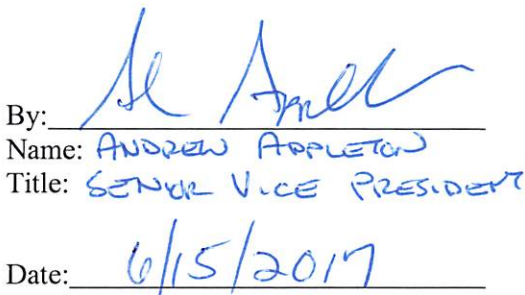 By:
Name: ANDREW APPLETON
Title: SENIOR VICE PRESIDENT
Date: 6/15/2017